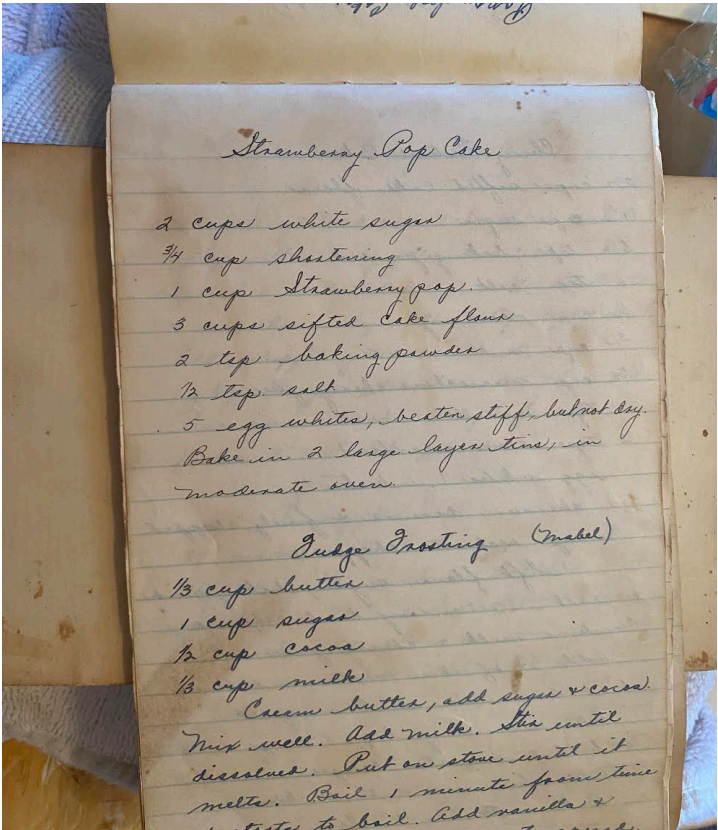 Strawberry Pop Cake
2 cups white sugar
3/4 cup shortening
1 cup Strawberry pop.
3 cups sifted cake flour
2 tsp baking powder
1/2 tsp salt
5 egg whites, beaten stiff, but not dry.
Bake in 2 large layer tins, in
moderate oven.
Fudge Frosting (Mabel)
1/3 cup butter
1 cup sugar
1/2 cup cocoa
1/3 cup milk
Cream butter, add sugar & cocoa.
Mix well. Add milk. Stir until
dissolved. Put on stove until it
melts. Boil 1 minute from time
to boil. Add vanilla &